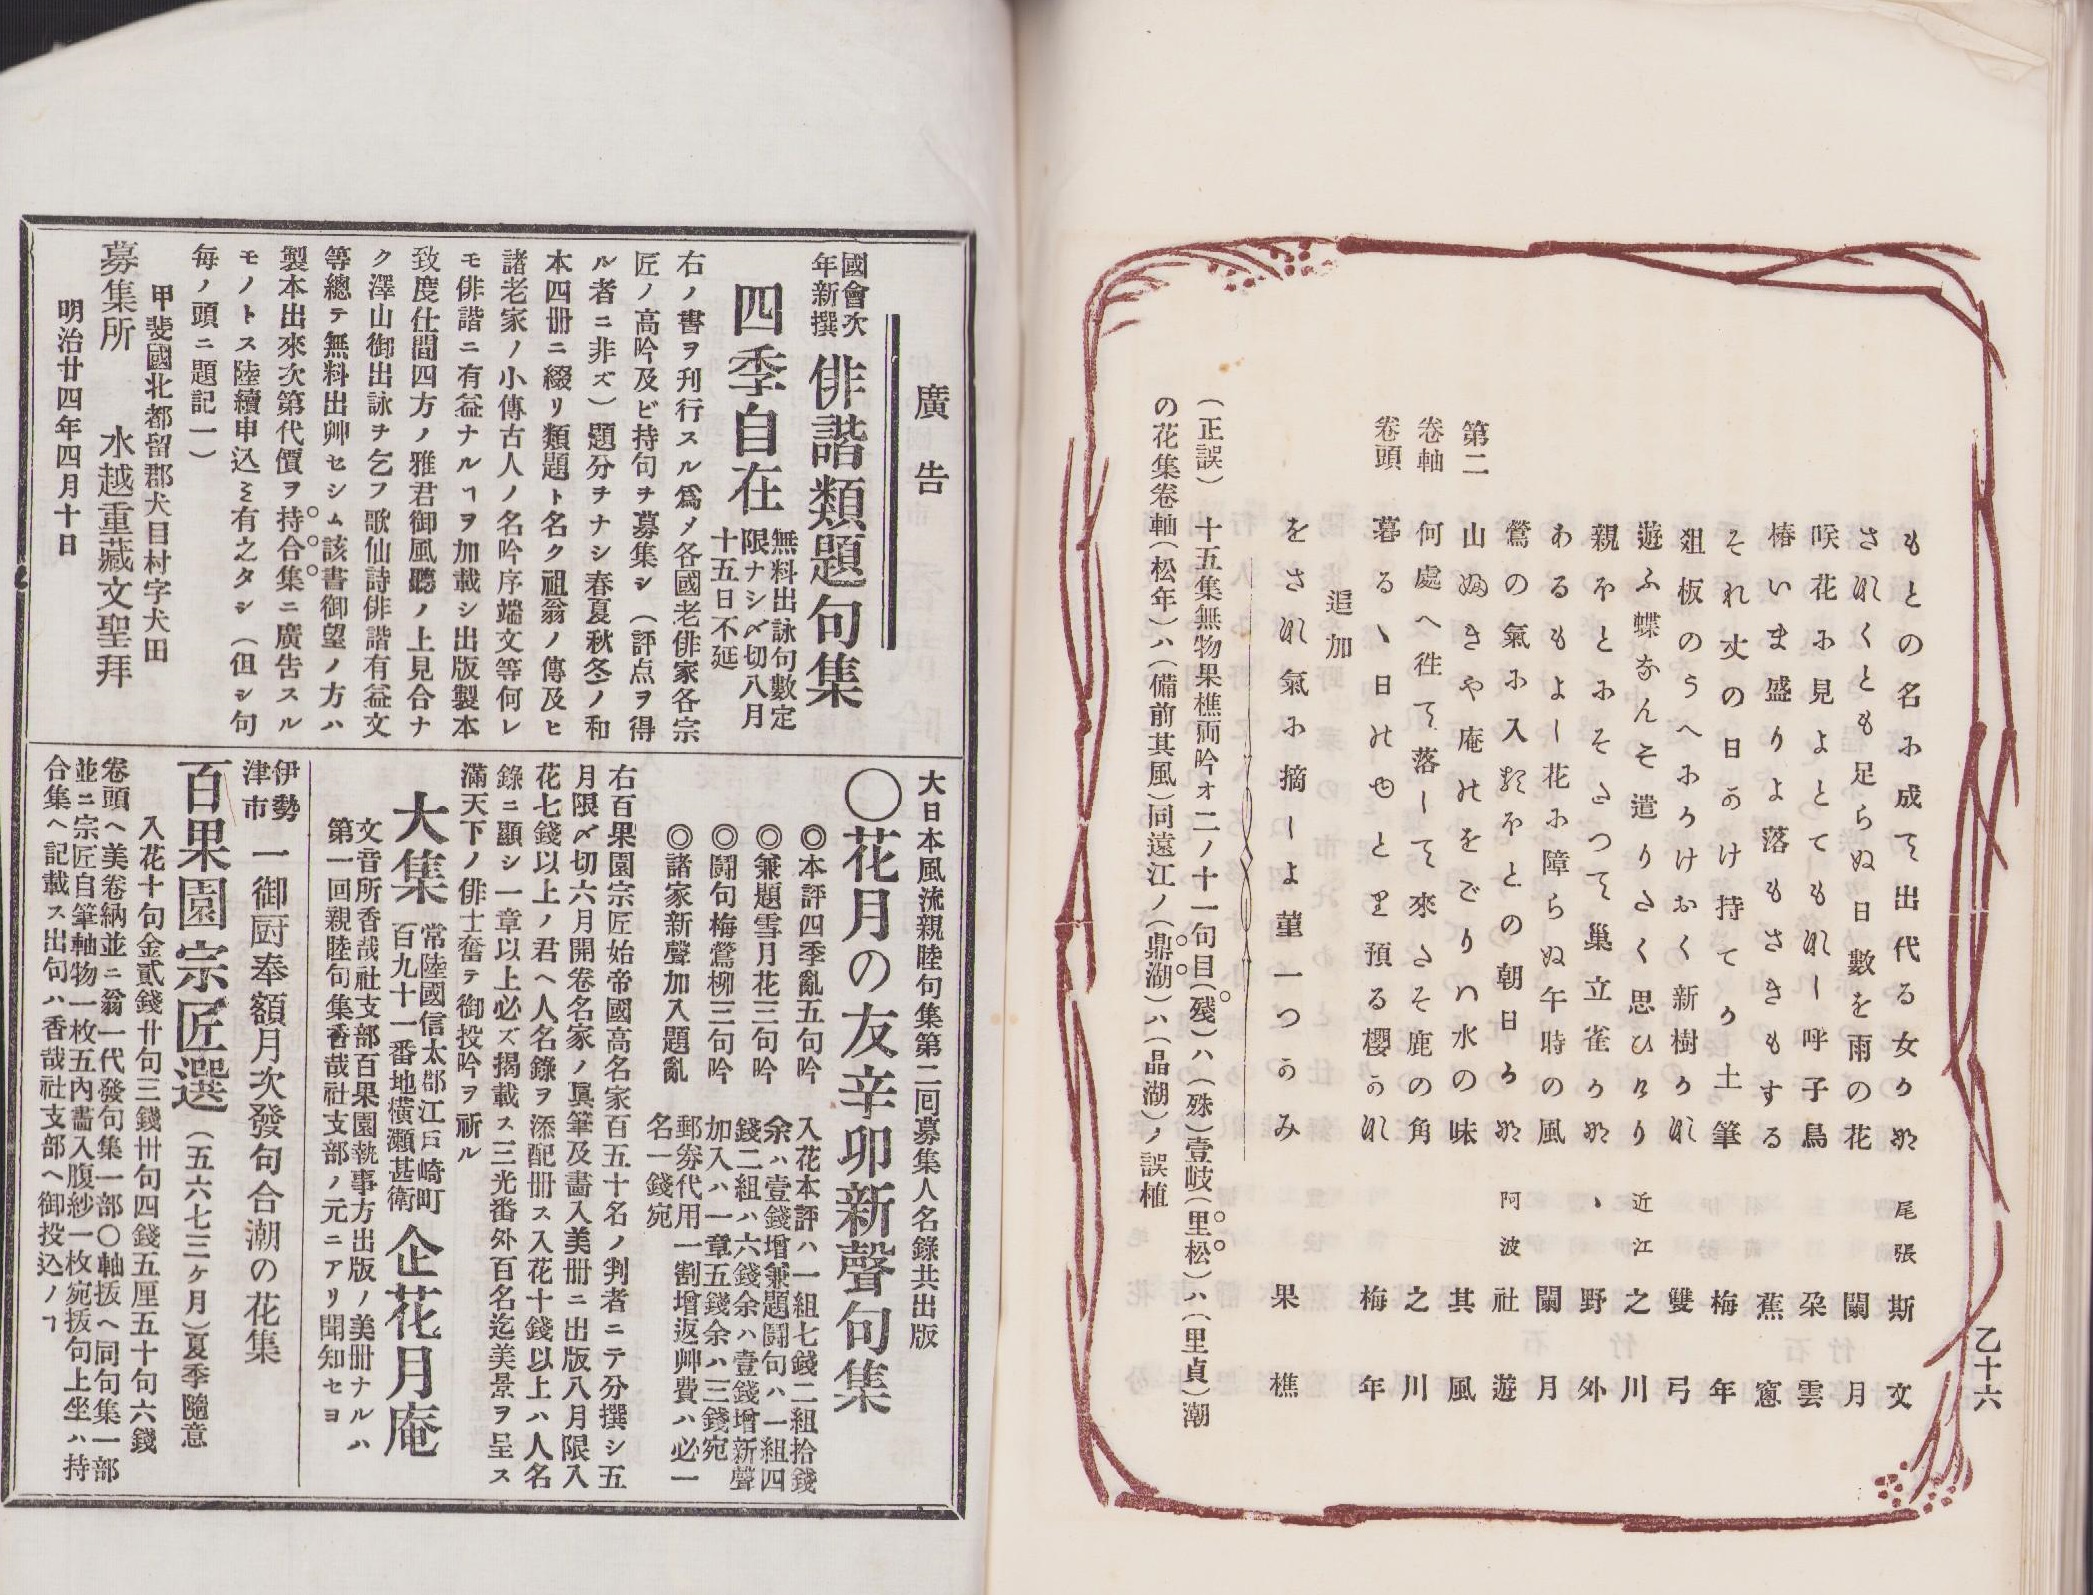 乙十六
もとの名ふ成て出代る女かな 尾張 斯文
されくとも足らぬ日數を雨の花 蘭月
咲花ふ見よとてもれし呼子鳥 朶雲
椿いま盛りよ落もさきもする 蕉窻
それ丈の日かけ持てか土筆 梅年
爼板のうへふかけおく新樹かな 雙弓
遊ふ蝶なんそ遣りたく思ひけり 近江 之川
親ほとふそたつて巣立雀かな 〃 野外
あるもよし花ふ障らぬ午時の風 蘭月
鶯の氣ふ入るほとの朝日かな 阿波 社遊
第二 山吹きや庵のをごりハ水の味 其風
卷軸 何處へ徃て落して來たそ鹿の角 之川
卷頭 暮るゝ日の也とり預る櫻かな 梅年
追加
をされ氣ふ摘しよ菫一つかみ 果樵
(正誤) 十五集無物果樵両吟オ二ノ十一句目(殘)ハ(殊)壹岐(里松)ハ(里貞)潮
の花集卷軸(松年)ハ(備前其風)同遠江ノ(鼎湖)ハ(晶湖)ノ誤植
廣告
國會次
年新撰 俳諧類題句集
四季自在
無料出詠句數定
限ナシ〆切八月
十五日不延
右ノ書ヲ刋行スル爲メ各國老俳家各宗
匠ノ高吟及ビ持句ヲ募集シ(評点ヲ得
ル者ニ非ズ)題分ヲナシ春夏秋冬ノ和
本四冊ニ綴リ類題ト名ク祖翁ノ傳及ヒ
諸老家ノ小傳古人ノ名吟序端文等何レ
モ俳諧ニ有益ナルヿヲ加載シ出版製本
致度仕間四方ノ雅君御風聽ノ上見合ナ
ク澤山御出詠ヲ乞フ歌仙詩俳諧有益文
等總テ無料出艸セシム該書御望ノ方ハ
製本出來次第代價ヲ持合集ニ廣告スル
モノトス陸續申込ミ有之タシ(但シ句
每ノ頭ニ題記一)
甲斐國北都留郡犬目村字犬田
募集所 水越重藏文聖拜
明治廿四年四月十日
大日本風流親睦句集第二囘募集人名錄共出版
〇花月の友辛卯新聲句集
◎本評四季亂五句吟
◎兼題雪月花三句吟
◎鬪句梅鶯柳三句吟
◎諸家新聲加入題亂
入花本評ハ一組七錢二組拾錢
余ハ壹錢增兼題鬪句ハ一組四
錢二組ハ六錢余ハ壹錢增新聲
加入ハ一章五錢余ハ三錢宛
郵劵代用一割增返艸費ハ必一
名一錢宛
右百果園宗匠始帝國高名家百五十名ノ判者ニテ分撰シ五
月限〆切六月開卷名家ノ眞筆及畵入美冊ニ出版八月限入
花七錢以上ノ君ヘ人名錄ヲ添配冊ス入花十錢以上ハ人名
錄ニ顯シ一章以上必ズ揭載ス三光番外百名迄美景ヲ呈ス
滿天下ノ俳士奮テ御投吟ヲ祈ル
大集 常陸國信太郡江戸崎町
百九十一番地橫瀨甚衛 企花月庵
文音所香哉社支部百果園執事方出版ノ美冊ナルハ
第一回親睦句集香哉社支部ノ元ニアリ聞知セヨ
伊勢
津市 一御厨奉額月次發句合潮の花集
百果園宗匠選 (五六七三ヶ月)夏季隨意
入花十句金貳錢廿句三錢卅句四錢五厘五十句六錢
卷頭ヘ美卷納並ニ翁一代發句集一部〇軸抜ヘ同句集一部
並ニ宗匠自筆軸物一枚五內畵入腹紗一枚宛抜句上坐ハ持
合集ヘ記載ス出句ハ香哉社支部ヘ御投込ノヿ